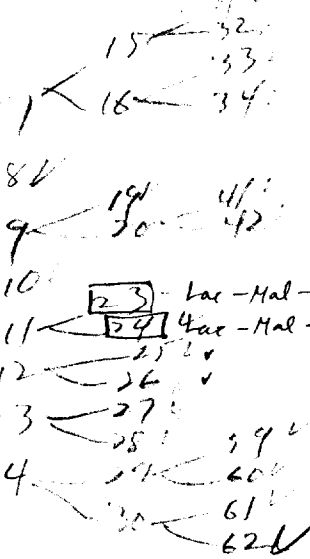 15 32
33
1 16 34
8 ✓
19 41
9 20 42
10
23 - Lac - Mal -
11 24 Lac - Mal -
25 ✓
12 26 ✓
3 27
28 59 ✓
4 29 60 ✓
30 61 ✓
62 ✓